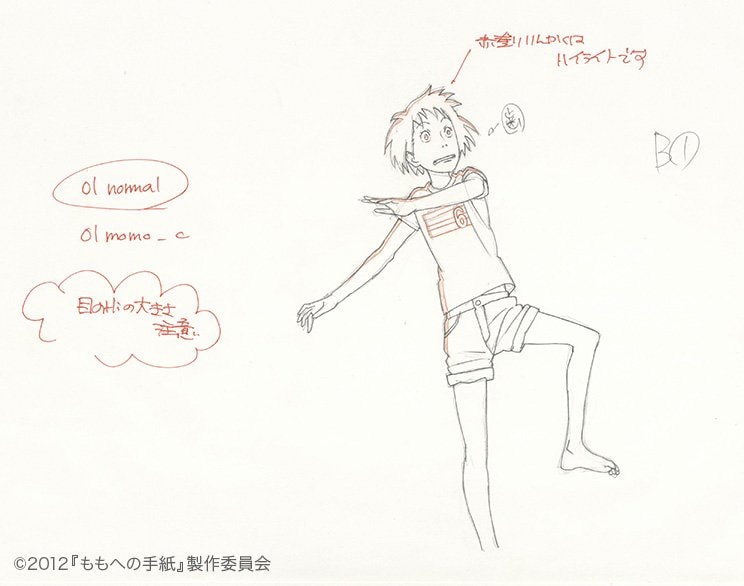 赤塗りりんかくは
ハイライトです
歯
B①
01 normal
01 momo_c
目のHiの大きさ
注意
6
©2012『ももへの手紙』製作委員会